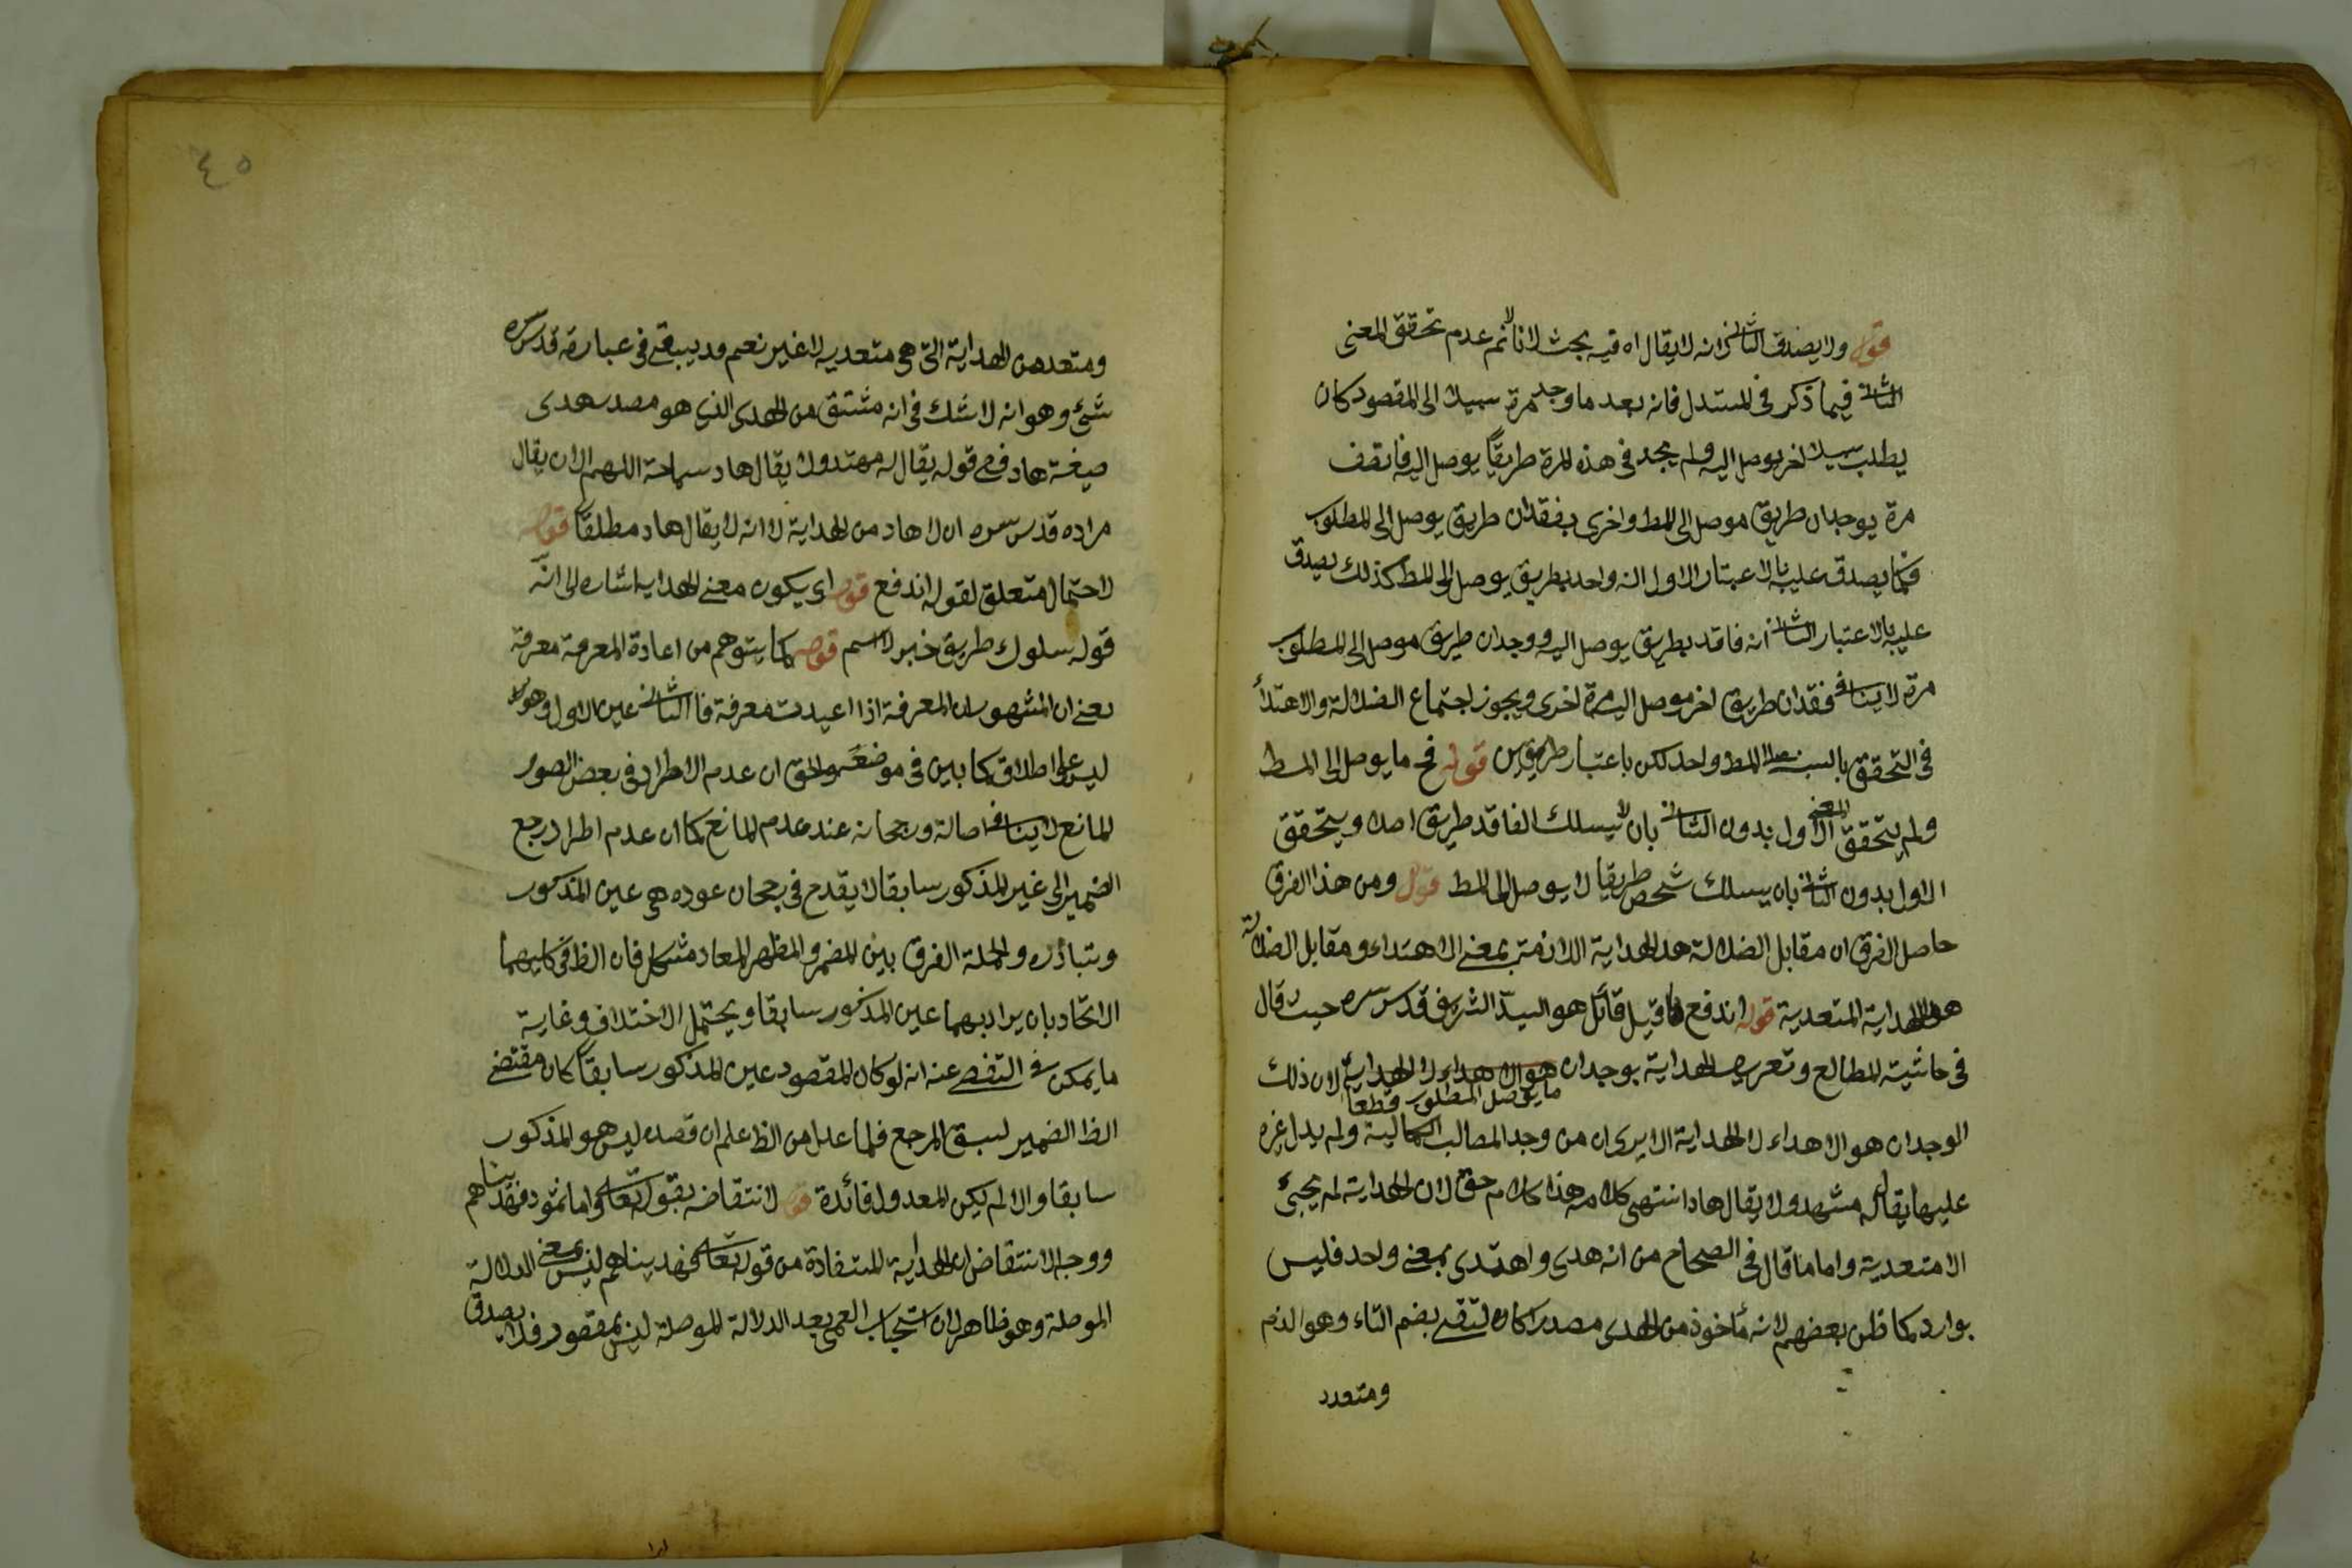 قوله ولا يصدق الثانى انه لا يقال اه فيه بحث لانا لا نم عدم تحقق المعنى
الثانى فيما ذكر فى المستدل فانه بعد ما وجد مرة سبيلا الى المقصود كان
يطلب سبيلا اخر يوصل اليه ولم يجد فى هذه المرة طريقا يوصل اليه فاتصف
مرة بوجدان طريق موصل الى المط واخرى بفقدان طريق يوصل الى المطلوب
فكما يصدق عليه بالاعتبار الاول انه واحد بطريق يوصل الى المط كذلك يصدق
عليه بالاعتبار الثانى انه فاقد بطريق يوصل اليه ووجدان طريق موصل الى المطلوب
مرة لا ينافى فقدان طريق اخر موصل اليه مرة اخرى ويجوز اجتماع الضلالة والاهتداء
فى التحقق بالنسبة الى المط واحد لكن باعتبار طريقين قوله فح ما يوصل الى المط
ولم يتحقق المعنى الاول بدون الثانى بان لا يسلك الفاقد طريق اصلا ويتحقق
الاول بدون الثانى بان يسلك شخص طريقا لا يوصل الى المط قوله ومن هذا الفرق
حاصل الفرق ان مقابل الضلالة هو الهداية اللازمة بمعنى الاهتداء ومقابل الضلالة
هو الهداية المتعدية قوله اندفع ما قيل قائل هو السيد الشريف قدس سره حيث قال
فى حاشية المطالع وتعريف الهداية بوجدان ما يوصل المطلوب قطعا هو الاهداء لا الهداية لان ذلك
الوجدان هو الاهداء لا الهداية الا يرى ان من وجد المطالب الكمالية ولم يدل غيره
عليها يقال له مشهد ولا يقال هاد انتهى كلامه هذا كلام حق لان الهداية لم يجئ
الا متعدية واما ما قال فى الصحاح من انه هدى واهتدى بمعنى واحد فليس
بوارد كما ظن بعضهم لانه مأخوذ من الهدى مصدرا كان لتقى بضم التاء وهو الذم
ومتعدد
٤٥
ومتعد من الهداية التى هى متعدية لا غير نعم قد يبقى فى عبارة قدس سره
شئ وهو انه لا شك فى انه مشتق من الهدى الذى هو مصدر هدى
صيغة هاد ففى قوله يقال له مهتد ولا يقال هاد سماحة اللهم الا ان يقال
مراده قدس سره ان لا هاد من الهداية لا انه لا يقال هاد مطلقا قوله
لاحتمال متعلق لقوله اندفع قوله اى يكون معنى الهداية اشارة الى انه
قوله سلوك طريق خبر لا اسم قوله كما يتوهم من اعادة المعرفة معرفة
يعنى ان المشهور ان المعرفة اذا اعيدت معرفة فالثانى عين الاول وهو
ليس على اطلاقه كما بين فى موضعه والحق ان عدم الاطراد فى بعض الصور
لمانع لا ينافى اصالته ورجحانه عند عدم المانع كما ان عدم اطراد رجع
الضمير الى غير المذكور سابقا لا يقدح فى رجحان عوده هى عين المذكور
وتبادره والجملة الفرق بين المضمر والمظهر المعاد مشكل فان الظ فى كليهما
الاتحاد بان يراد بهما عين المذكور سابقا ويحتمل الاختلاف وغاية
ما يمكن فى التفصى عنه انه لو كان المقصود عين المذكور سابقا كان مقتضى
الظ الضمير لسبق المرجع فلما عدل من الظ علم ان قصده ليس هو المذكور
سابقا والا لم يكن المعدول فائدة قوله لانتقاضه بقوله تعالى واما ثمود فهديناهم
ووجه الانتقاض ان الهداية المستفادة من قوله تعالى فهديناهم ليس بمعنى الدلالة
الموصلة وهو ظاهر لان استحباب العمى بعد الدلالة الموصلة ليس بمقصود فلا يصدق